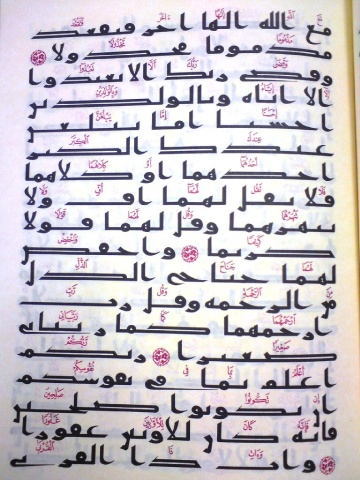 مع الله الها اخر فتقعد
مذموما مخذولا
وقضى ربك الا تعبدوا
الا اياه وبالولدين
احسنا اما يبلغن
عندك الكبر
احدهما او كلاهما
فلا تقل لهما اف ولا
تنهرهما وقل لهما قولا
كريما واخفض
لهما جناح الذل
من الرحمة وقل رب
ارحمهما كما ربياني
صغيرا ربكم
اعلم بما في نفوسكم
ان تكونوا صلحين
فانه كان للاوبين غفورا
وات ذا القربى